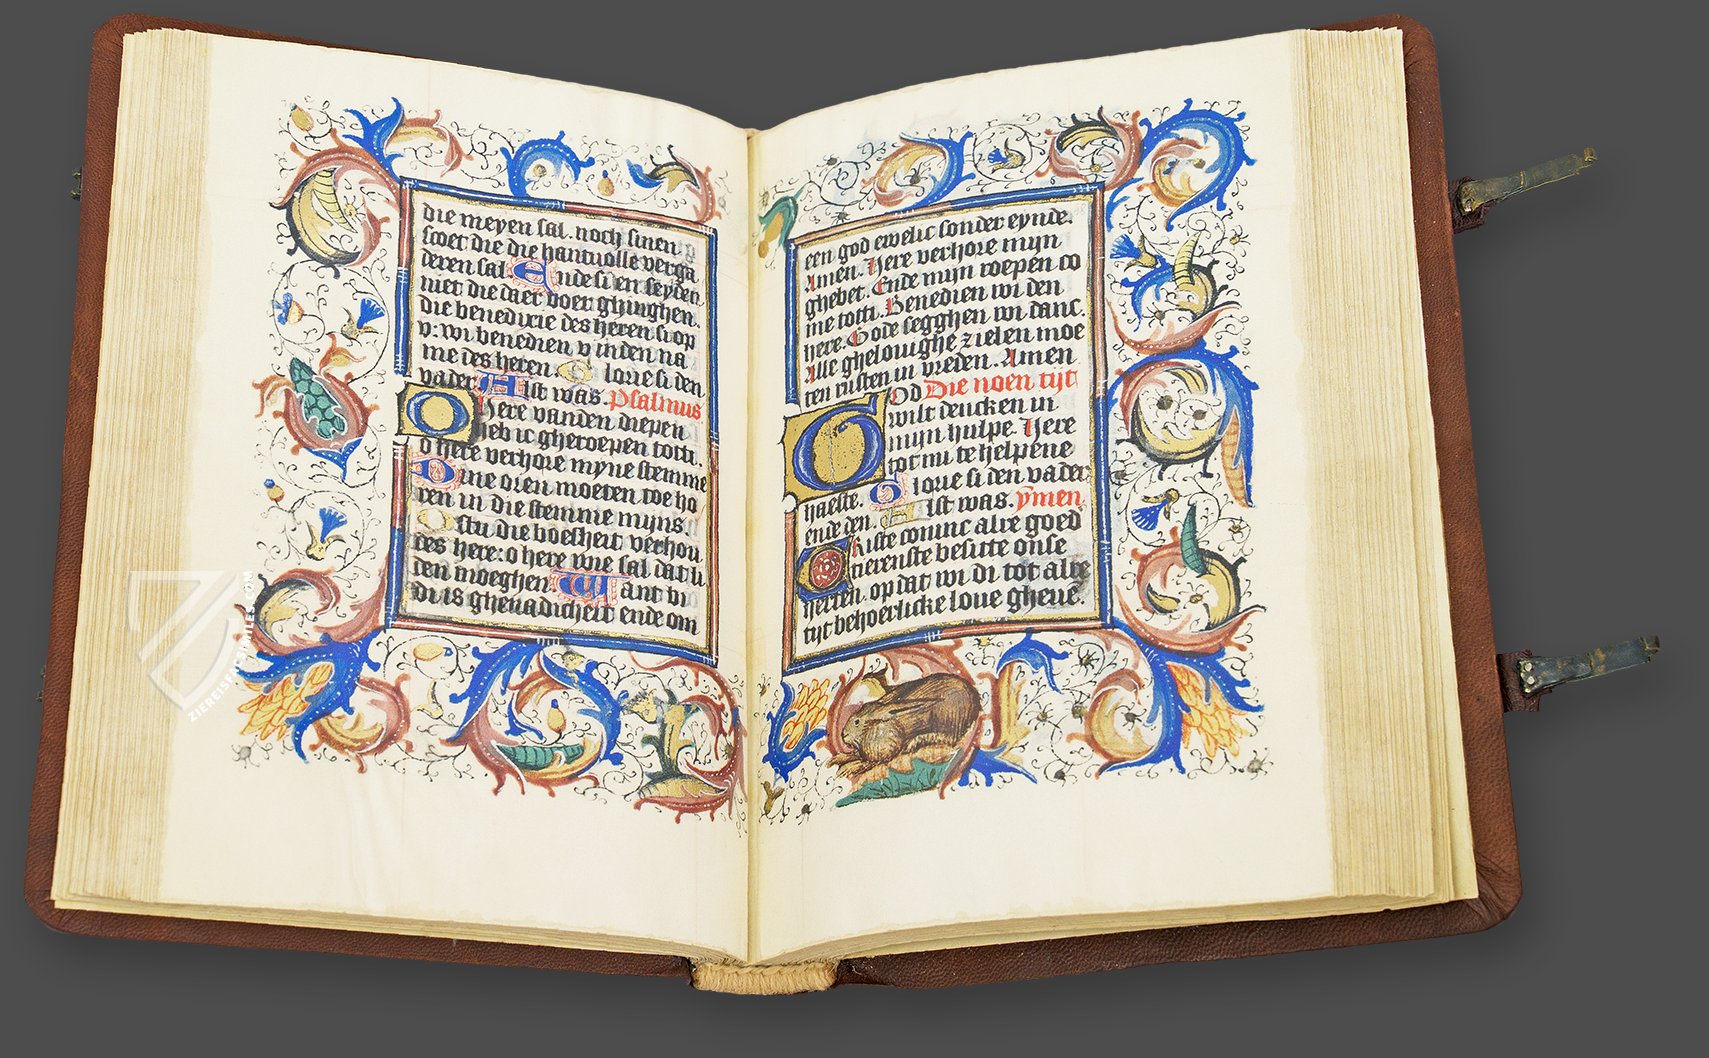 die meyen sal. noch sinen
scoet die die hantuolle verga
deren sal Ende si en seyden
niet die daer voer ghinghen.
die benedixie des heren si op
v: wi benedien v in den na
me des heren. Glorie si den
vader. Alst was. Psalmus
O here vanden diepen
heb ic gheroepen totti.
o here verhore myne stemme
Dine oren moeten toe ho
ren in die stemme myns.
Ostu die boesheit verhou
des here: o here wie sal dat li
den moeghen Want bi
di is ghenadicheit ende om
een god ewelic sonder eynde.
Amen. Here verhore mijn
ghebet. Ende mijn roepen co
me totti. Benedien wi den
here. Gode segghen wi danc.
Alle ghelouighe zielen moe
ten rusten in vreden. Amen
GOd Die noen tijt
wilt dencken in
mijn hulpe. Here
tot mi te helpene
haeste. Glorie si den vader
ende den. Alst was. ymen.
Kiste coninc alre goed
tierenste besitte onse
herten. op dat wi di tot alre
tijt behoerlicke loue gheue
ZIEREISFACSIMILE.COM